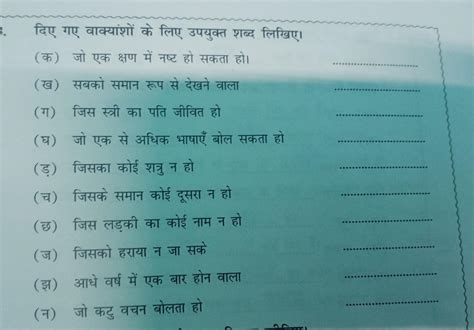 दिए गए वाक्यांशों के लिए उपयुक्त शब्द लिखिए।
(क) जो एक क्षण में नष्ट हो सकता हो। ....................
(ख) सबको समान रूप से देखने वाला ....................
(ग) जिस स्त्री का पति जीवित हो ....................
(घ) जो एक से अधिक भाषाएँ बोल सकता हो ....................
(ड़) जिसका कोई शत्रु न हो ....................
(च) जिसके समान कोई दूसरा न हो ....................
(छ) जिस लड़की का कोई नाम न हो ....................
(ज) जिसको हराया न जा सके ....................
(झ) आधे वर्ष में एक बार होन वाला ....................
(न) जो कटु वचन बोलता हो ....................